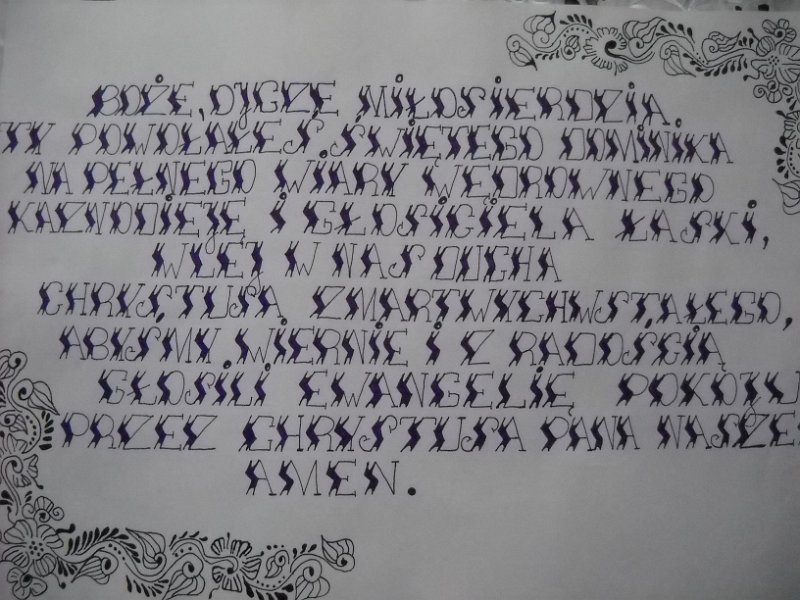 BOŻE, OJCZE MIŁOSIERDZIA,
TY POWOŁAŁEŚ ŚWIĘTEGO DOMINIKA
NA PEŁNEGO WIARY WĘDROWNEGO
KAZNODZIEJĘ I GŁOSICIELA ŁASKI,
WLEJ W NAS DUCHA
CHRYSTUSA ZMARTWYCHWSTAŁEGO,
ABYŚMY WIERNIE I Z RADOŚCIĄ
GŁOSILI EWANGELIĘ POKOJU
PRZEZ CHRYSTUSA PANA NASZE
AMEN.